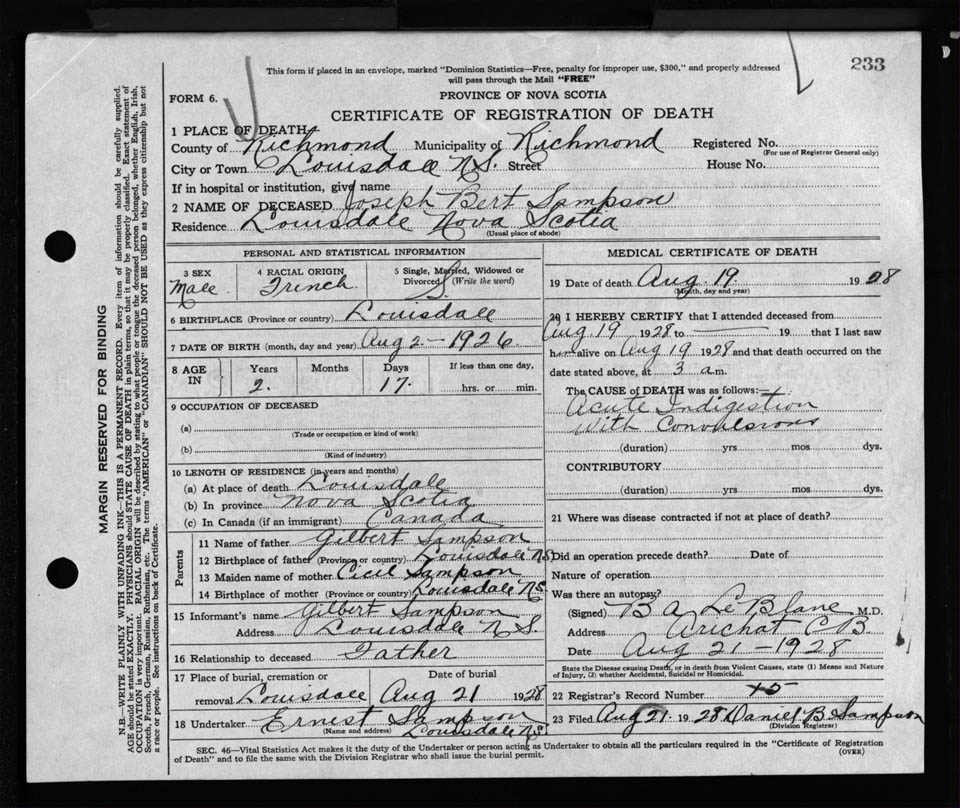 233
This form if placed in an envelope, marked "Dominion Statistics—Free, penalty for improper use, $300," and properly addressed
will pass through the Mail "FREE"
FORM 6.
PROVINCE OF NOVA SCOTIA
CERTIFICATE OF REGISTRATION OF DEATH
1 PLACE OF DEATH
County of Richmond Municipality of Richmond Registered No.
(For use of Registrar General only)
City or Town Louisdale N.S. Street House No.
If in hospital or institution, give name
2 NAME OF DECEASED Joseph Bert Sampson
Residence Louisdale Nova Scotia
(Usual place of abode)
PERSONAL AND STATISTICAL INFORMATION
3 SEX 4 RACIAL ORIGIN 5 Single, Married, Widowed or
Divorced (Write the word)
Male French S.
6 BIRTHPLACE (Province or country) Louisdale
7 DATE OF BIRTH (month, day and year) Aug 2 - 1926
8 AGE IN Years Months Days If less than one day,
2. 17. hrs. or min.
9 OCCUPATION OF DECEASED
(a)
(Trade or occupation or kind of work)
(b)
(Kind of industry)
10 LENGTH OF RESIDENCE (in years and months)
(a) At place of death Louisdale
(b) In province Nova Scotia
(c) In Canada (if an immigrant) Canada
Parents
11 Name of father Gilbert Sampson
12 Birthplace of father (Province or country) Louisdale N.S.
13 Maiden name of mother Cicil Sampson
14 Birthplace of mother (Province or country) Louisdale N.S.
15 Informant's name Gilbert Sampson
Address Louisdale N.S.
16 Relationship to deceased Father
17 Place of burial, cremation or Date of burial
removal Louisdale Aug 21 1928
18 Undertaker Ernest Sampson
(Name and address) Louisdale N.S.
MEDICAL CERTIFICATE OF DEATH
19 Date of death Aug 19. 1928
(Month, day and year)
20 I HEREBY CERTIFY that I attended deceased from
Aug 19 1928 to — 19 that I last saw
him alive on Aug 19 1928 and that death occurred on the
date stated above, at 3 a m.
The CAUSE of DEATH was as follows:—
Acute Indigestion
With Convulsions
(duration) yrs mos dys.
CONTRIBUTORY
(duration) yrs mos dys.
21 Where was disease contracted if not at place of death?
Did an operation precede death? Date of
Nature of operation
Was there an autopsy?
(Signed) B A LeBlanc M.D.
Address Arichat C B
Date Aug 21 - 1928
State the Disease causing Death, or in death from Violent Causes, state (1) Means and Nature
of Injury, (2) whether Accidental, Suicidal or Homicidal.
22 Registrar's Record Number
23 Filed Aug 21. 1928 Daniel B Sampson
(Division Registrar)
SEC. 46—Vital Statistics Act makes it the duty of the Undertaker or person acting as Undertaker to obtain all the particulars required in the "Certificate of Registration
of Death" and to file the same with the Division Registrar who shall issue the burial permit. (OVER)
MARGIN RESERVED FOR BINDING
N.B.—WRITE PLAINLY WITH UNFADING INK—THIS IS A PERMANENT RECORD. Every item of information should be carefully supplied.
AGE should be stated EXACTLY. PHYSICIANS should STATE CAUSE OF DEATH in plain terms, so that it may be properly classified. Exact statement of
OCCUPATION is very important. RACIAL ORIGIN will be described by stating to what people or tongue the deceased person belonged, whether English, Irish,
Scotch, French, German, Russian, Ruthenian, etc. The terms "AMERICAN" or "CANADIAN" SHOULD NOT BE USED as they express citizenship but not
a race or people. See instructions on back of Certificate.